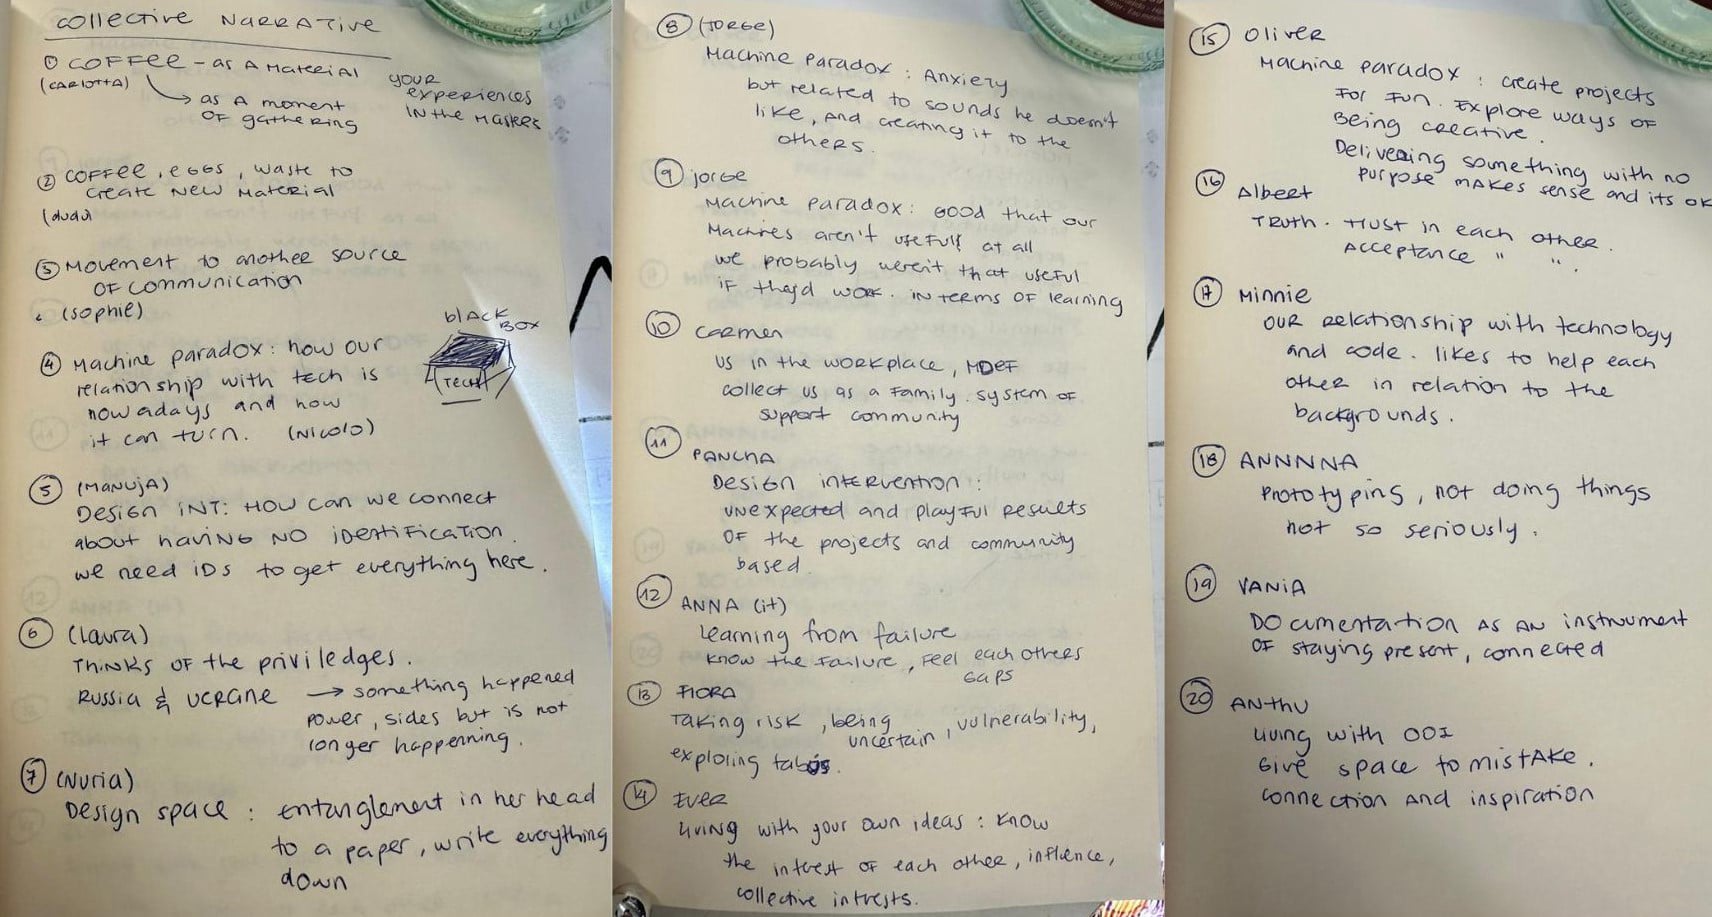 collective NARRATIVE
① COFFEE - as A MATERIAL
(CARLOTTA)
→ as A moment
OF gathering
your
experiences
IN the MASTERS
② COFFEE, EGGS, WASTE to
Create NEW MATERIAL
(dudu)
③ Movement to another source
OF communication
(Sophie)
④ Machine paradox: how our
relationship with tech is
nowadays and how
it can turn. (NICOLO)
blACK
BOX
(TECH)
⑤ (MANUJA)
DESIGN INT: HOW CAN WE CONNECT
about HAVING NO IDENTIFICATION.
we need IDs to get everything here.
⑥ (Laura)
THINKS OF the priviledges.
RUSSIA & UCRANE → something happened
power, sides but is not
longer happenning.
⑦ (Nuria)
Design space : entanglement in her head
to a paper, write everything
down
⑧ (JORGE)
Machine Paradox : Anxiety
but related to sounds he doesn't
like, and creating it to the
others.
⑨ jorge
Machine Paradox: GOOD that our
Machines aren't usefull at all
we probably weren't that useful
if they'd work. IN terms OF learning
⑩ Carmen
US in the WORKPLACE, MDEF
collect us as a family. system OF
support community
⑪ PANCHA
Design intervention :
unexpected and playful results
OF the projects and community
based.
⑫ ANNA (it)
Learning from failure
KNOW the failure, FEEL each others
GAPS
⑬ FIORA
Taking risk, being
uncertain, vulnerability,
exploring tabús.
⑭ Ever
living with your own ideas : KNOW
the intrest OF each other, influence,
collective intrests.
⑮ Oliver
Machine paradox : create projects
For fun. Explore ways OF
Being creative.
Delivering something with no
purpose makes sense and its OK
⑯ Albert
TRUTH. trust in each other.
Acceptance " ".
⑰ Minnie
OUR relationship with technology
and code. likes to help each
other in relation to the
backgrounds.
⑱ ANNNNA
Prototyping, not doing things
not so seriously.
⑲ VANIA
DOcumentation AS AN instrument
OF staying present, connected
⑳ ANthu
living with OOI
Give space to mistAke.
connection and inspiration